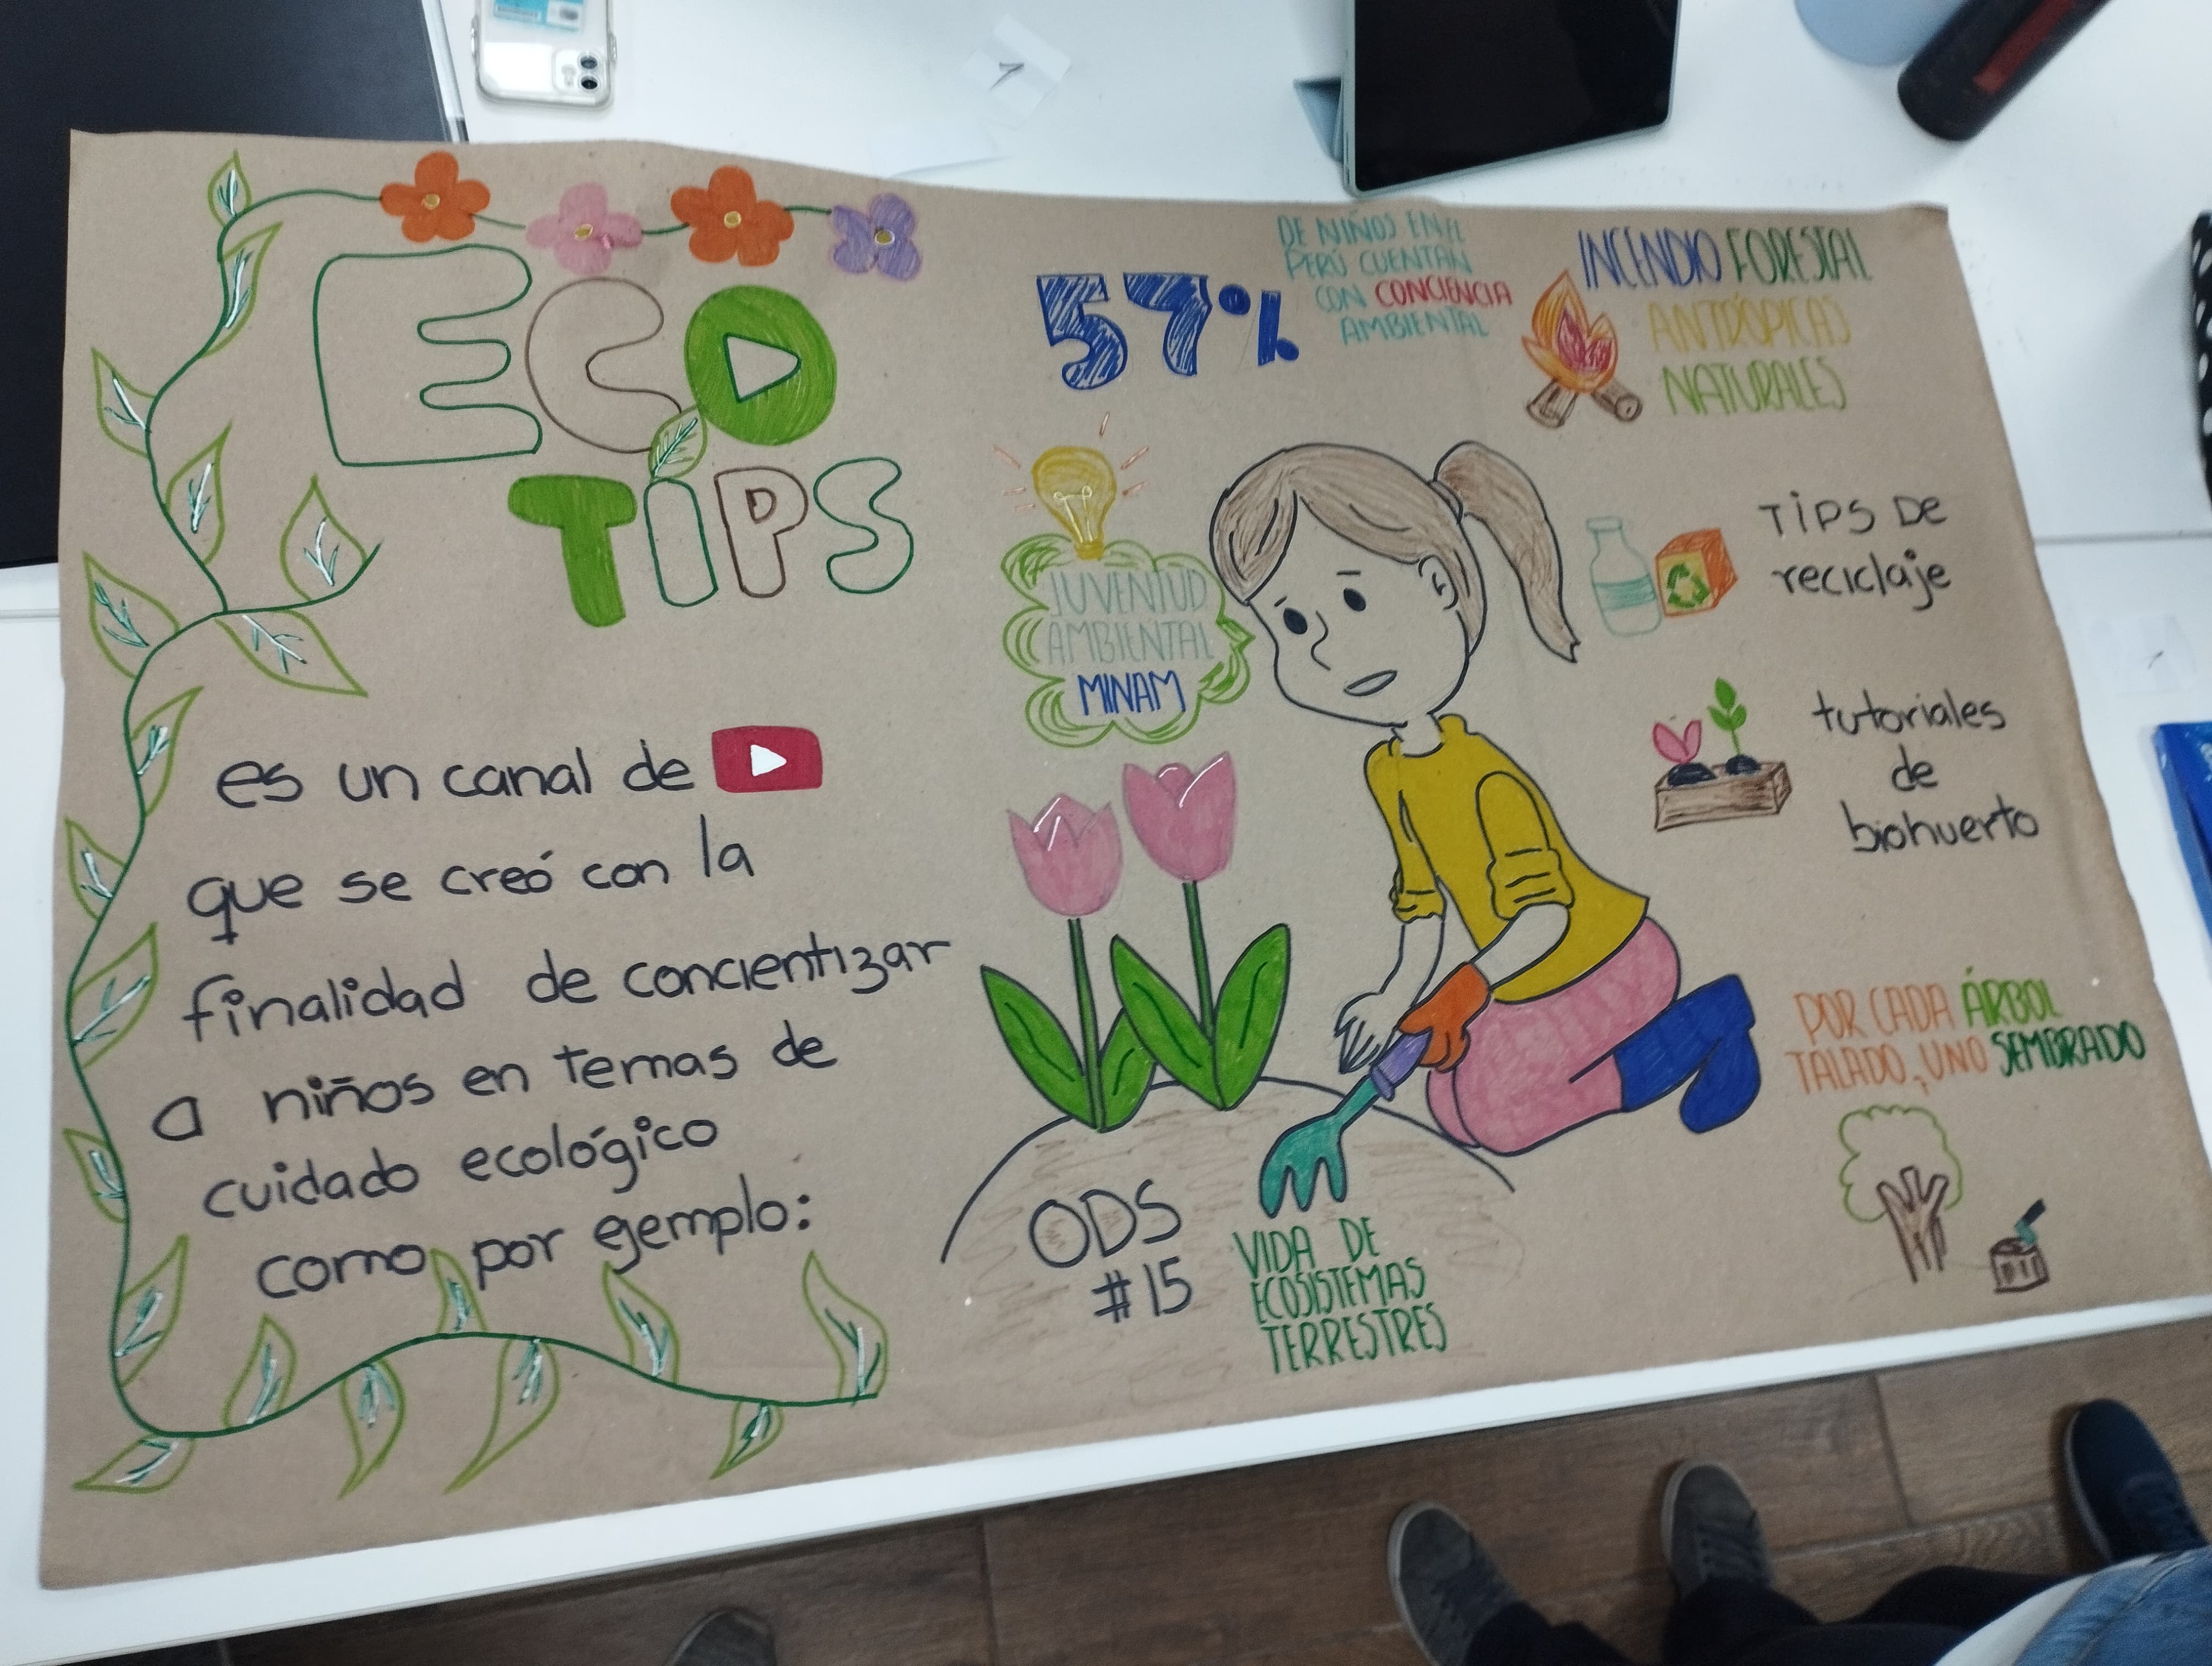 ECO
TIPS
es un canal de
que se creó con la
finalidad de concientizar
a niños en temas de
cuidado ecológico
como por egemplo:
57%
DE NIÑOS EN EL
PERÚ CUENTAN
CON CONCIENCIA
AMBIENTAL
INCENDIO FORESTAL
ANTRÓPICAS
NATURALES
JUVENTUD
AMBIENTAL
MINAM
TIPS DE
reciclaje
tutoriales
de
biohuerto
POR CADA ÁRBOL
TALADO, UNO SEMBRADO
ODS
#15
VIDA DE
ECOSISTEMAS
TERRESTRES